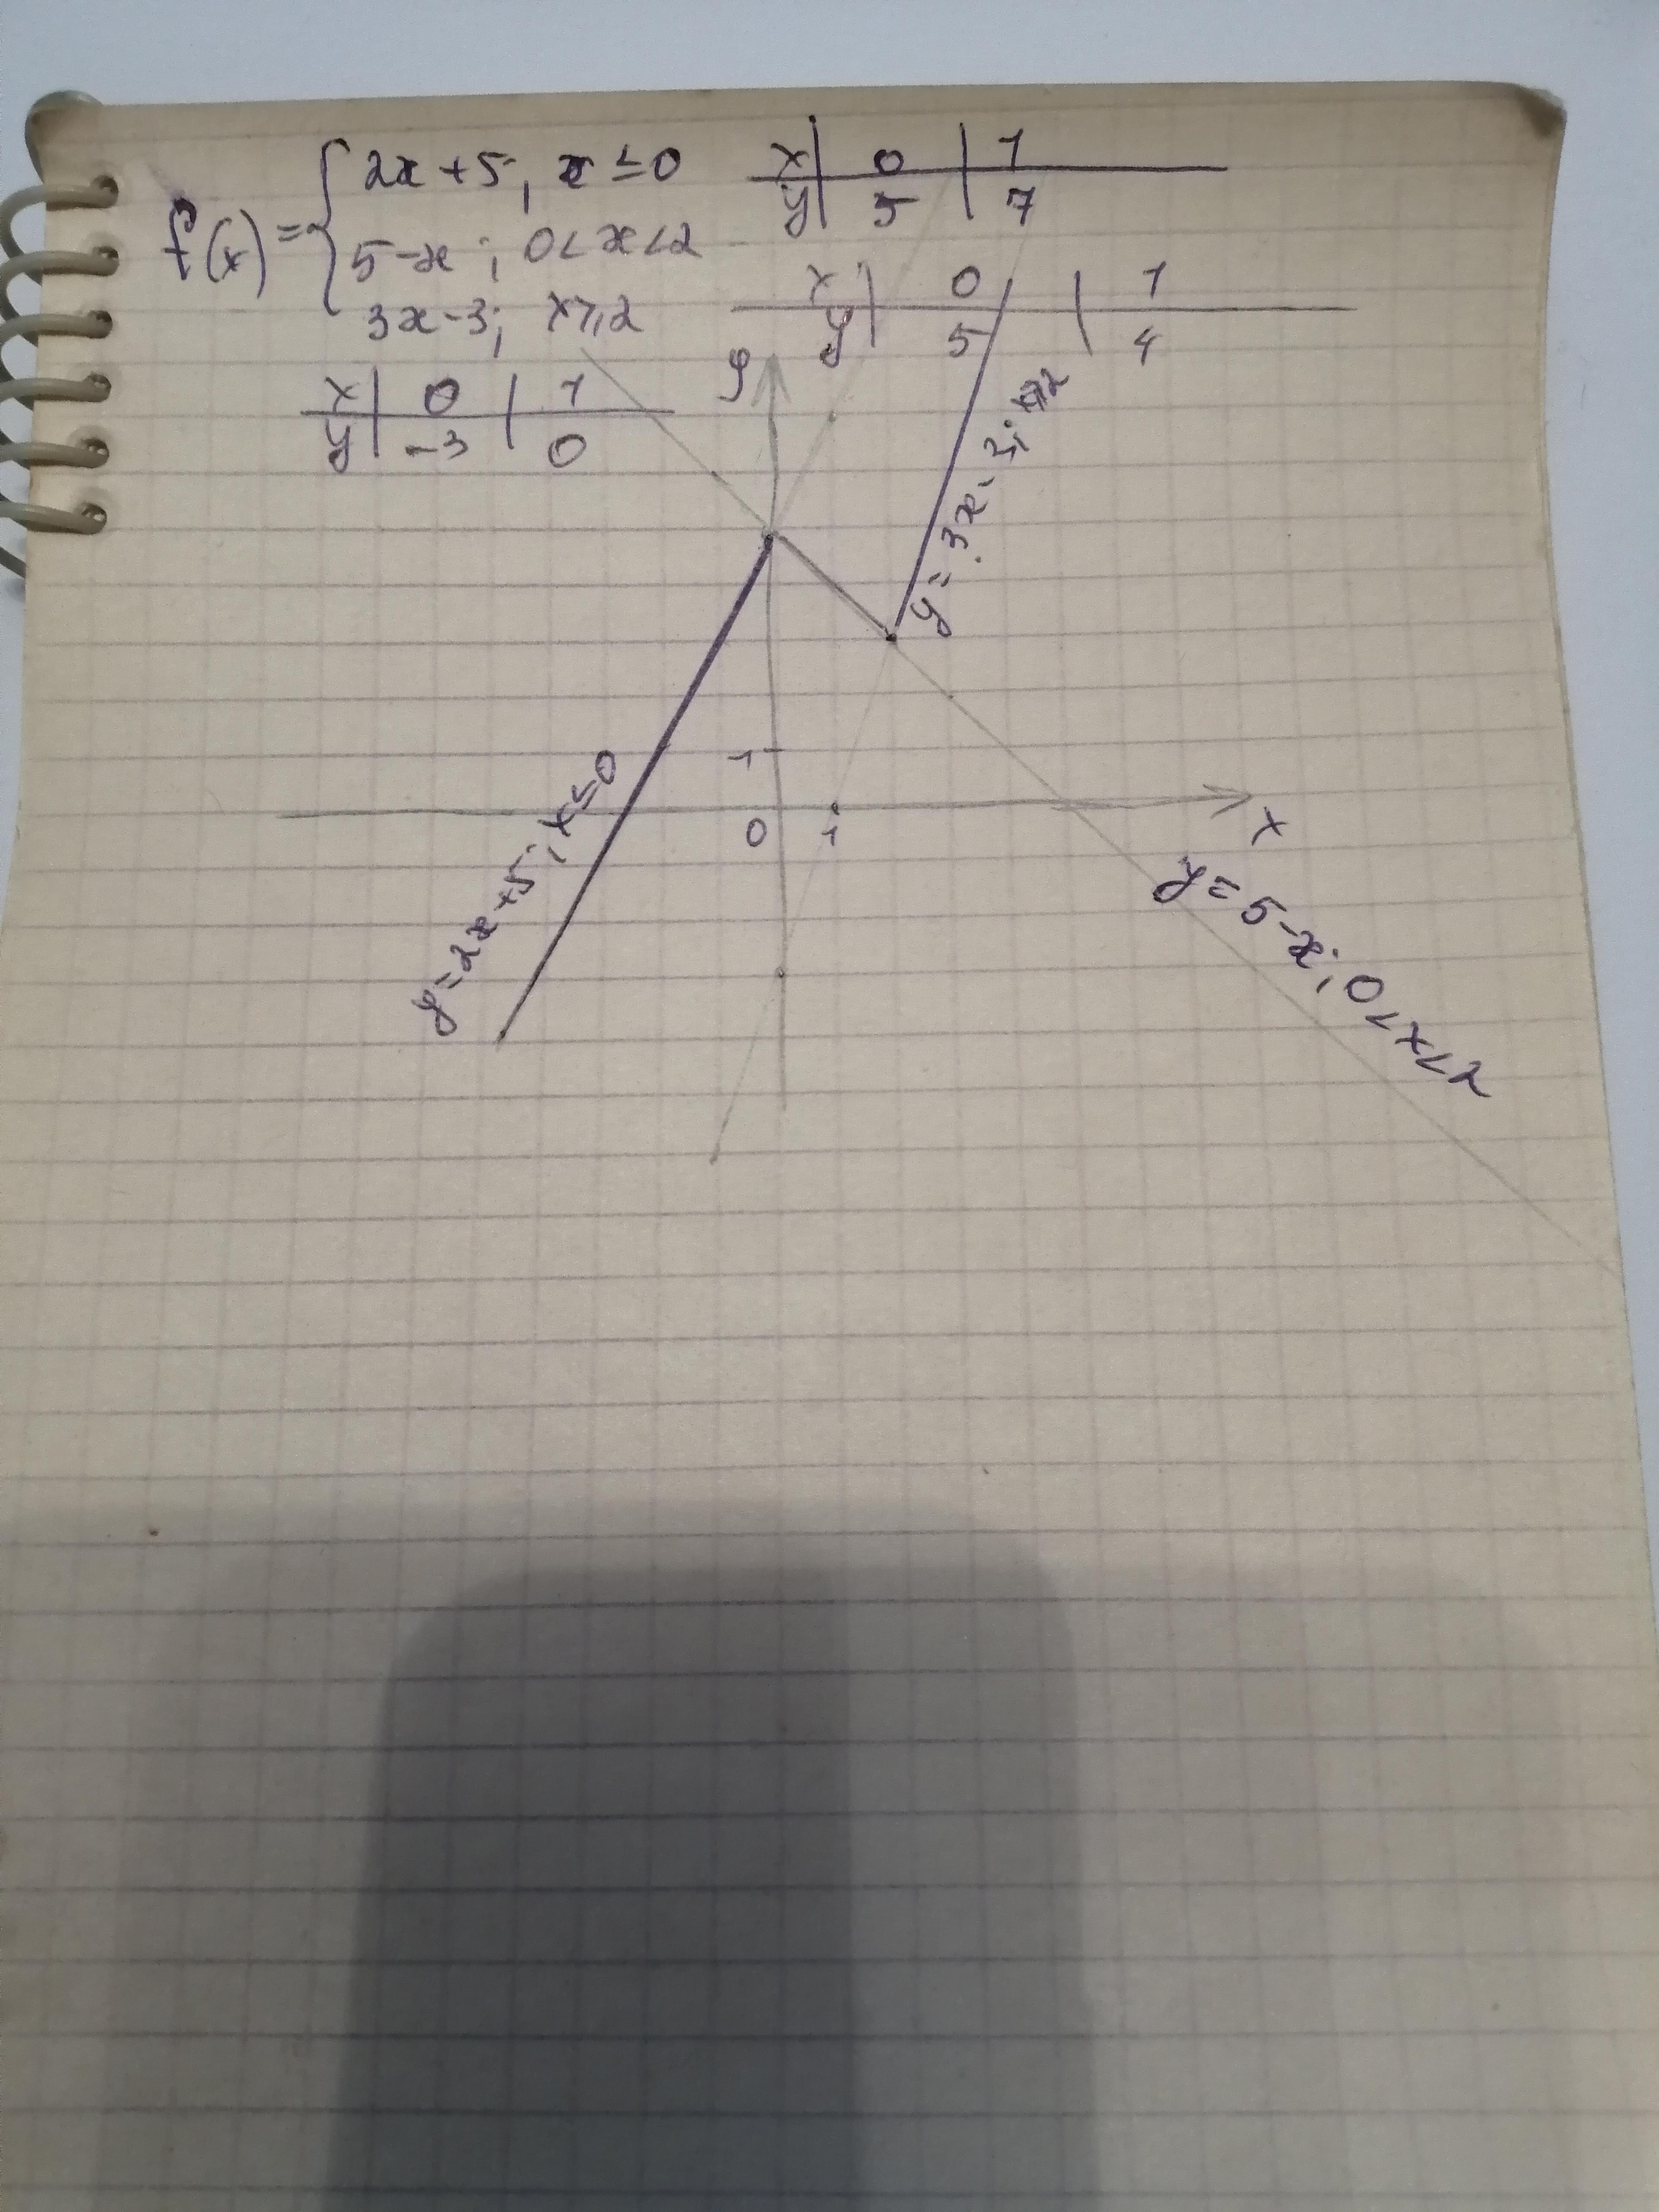 f(x) = { 2x+5; x ≤ 0
5-x; 0<x<2
3x-3; x ≥ 2
x | 0 | 1
y | 5 | 7
x | 0 | 1
y | 5 | 4
x | 0 | 1
y | -3 | 0
y
y = 3x-3; x≥2
1
0 1
x
y=2x+5; x≤0
y=5-x; 0<x<2